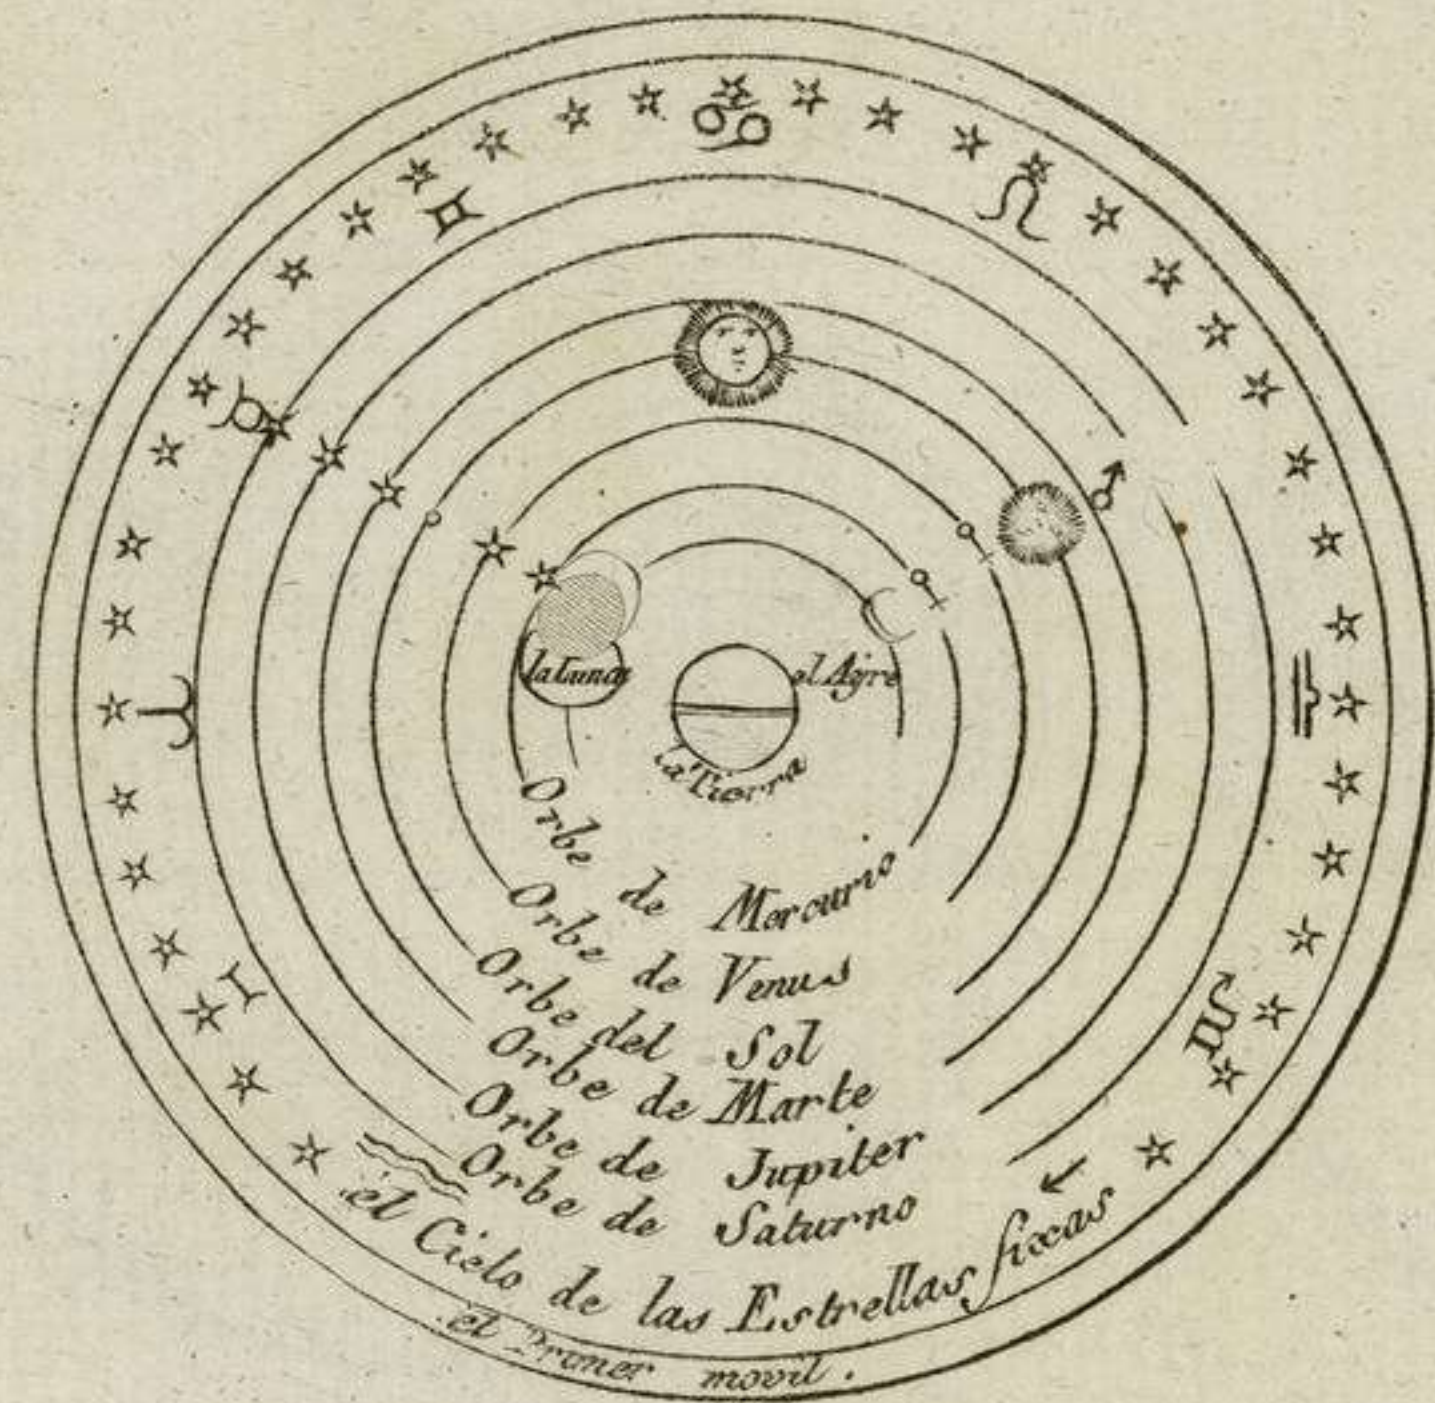 la Luna
el Ayre
la Tierra
Orbe de Mercurio
Orbe de Venus
Orbe del Sol
Orbe de Marte
Orbe de Jupiter
Orbe de Saturno
el Cielo de las Estrellas fixas
el Primer movil.